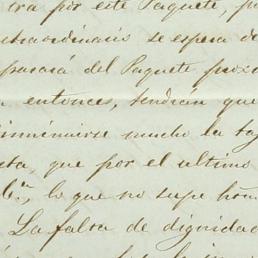 tra por este Paquete, p
xtraordinario se espera de
parará del Paquete proxi
entonces, tendrian que
isminuirse mucho la ta
eta, que por el ultimo
lo que no supe hon
La falta de dignidad